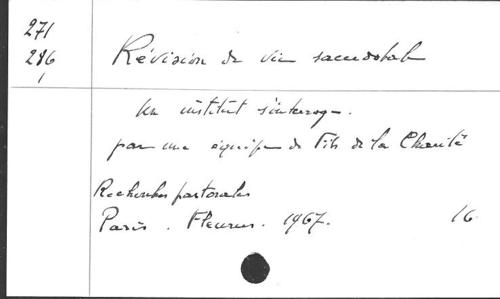 271
286
1
Révision de vie sacerdotale
Un institut s'interroge.
par une équipe de Fils de la Charité
Recherches pastorales
Paris. Fleurus. 1967. 16